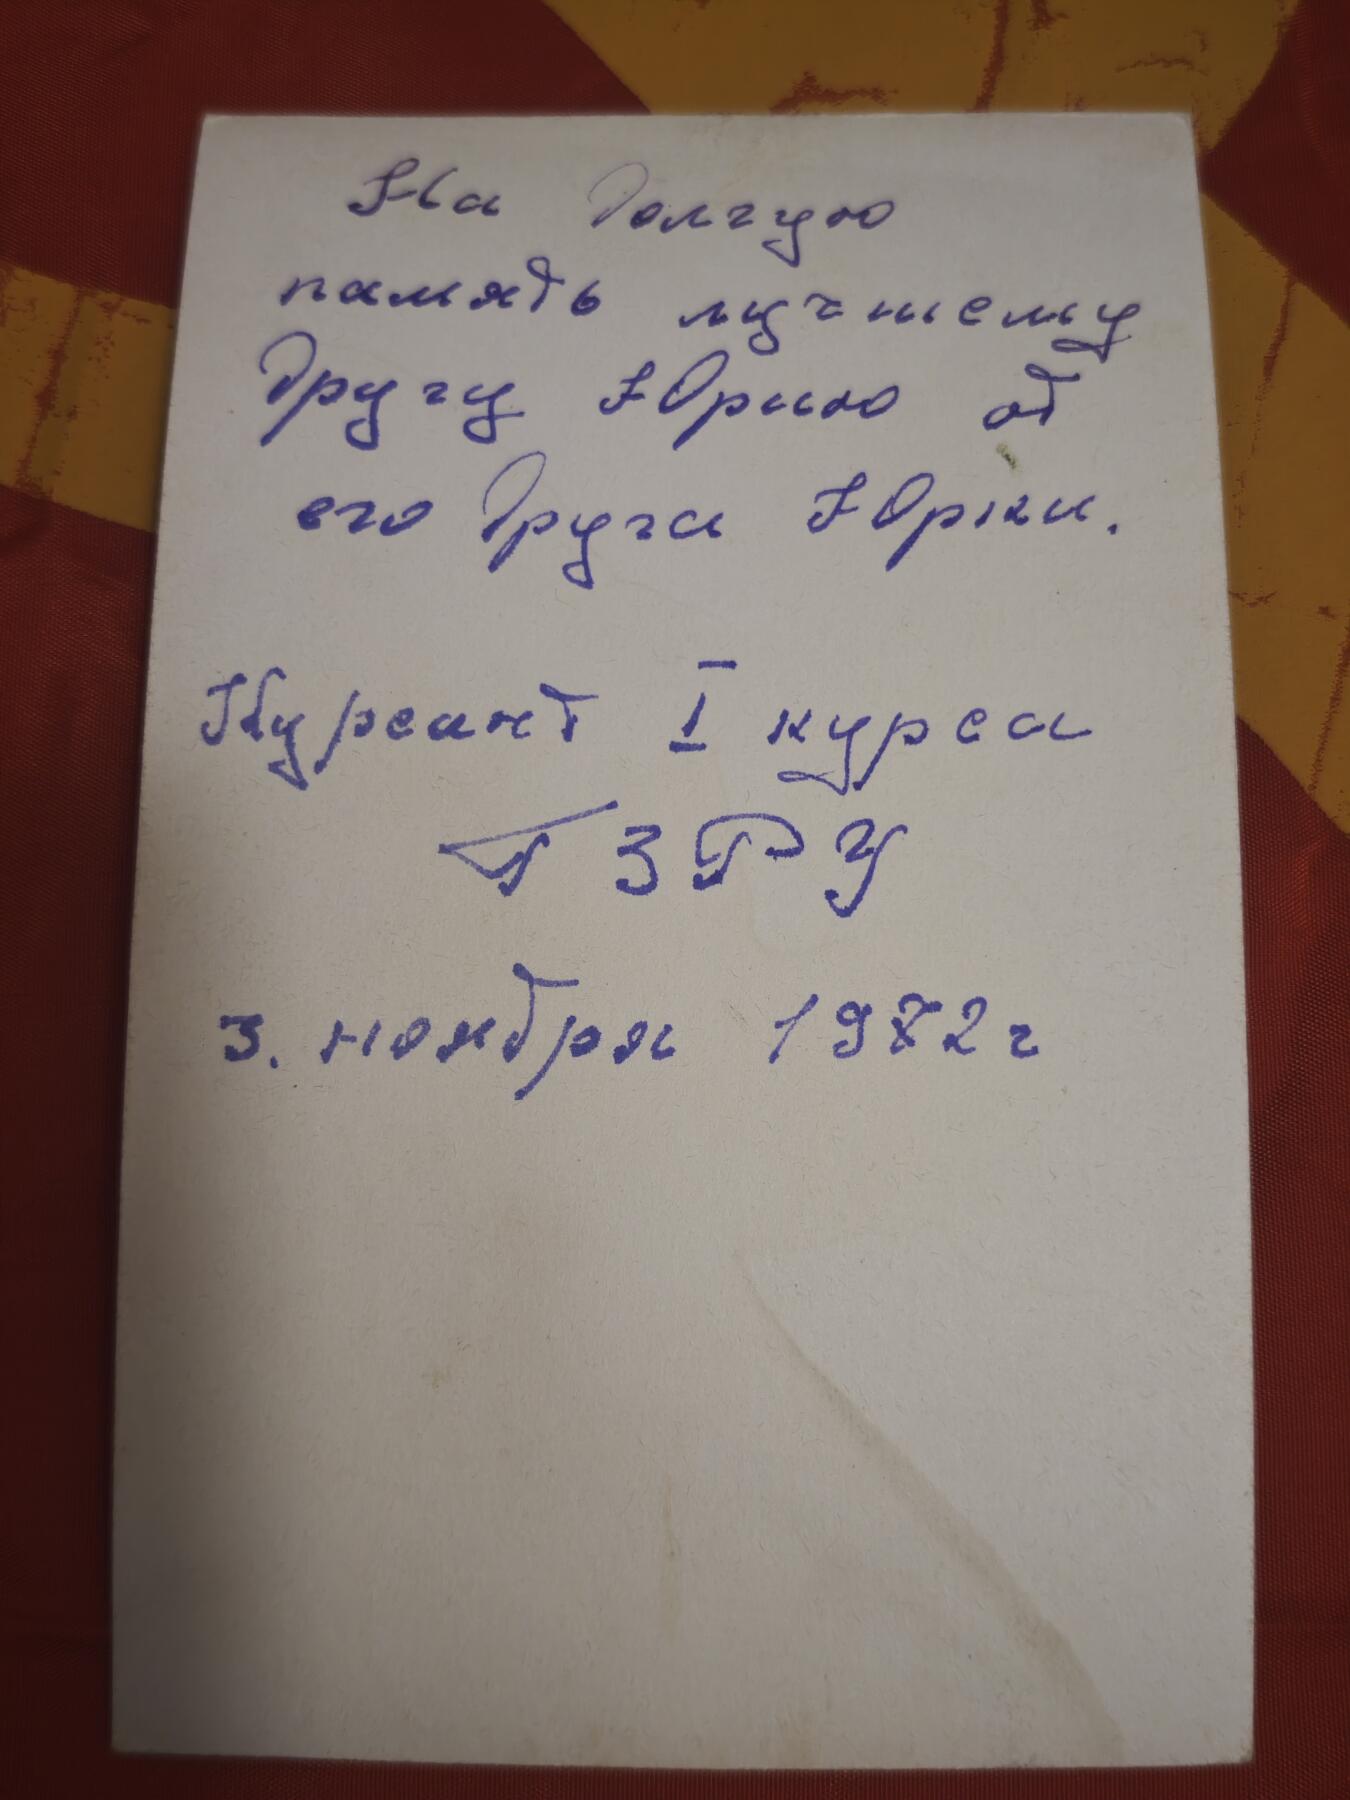 На долгую
память лучшему
другу Юрию от
его друга Юрки.
Курсант I курса
ЗРУ
3. ноября 1972 г